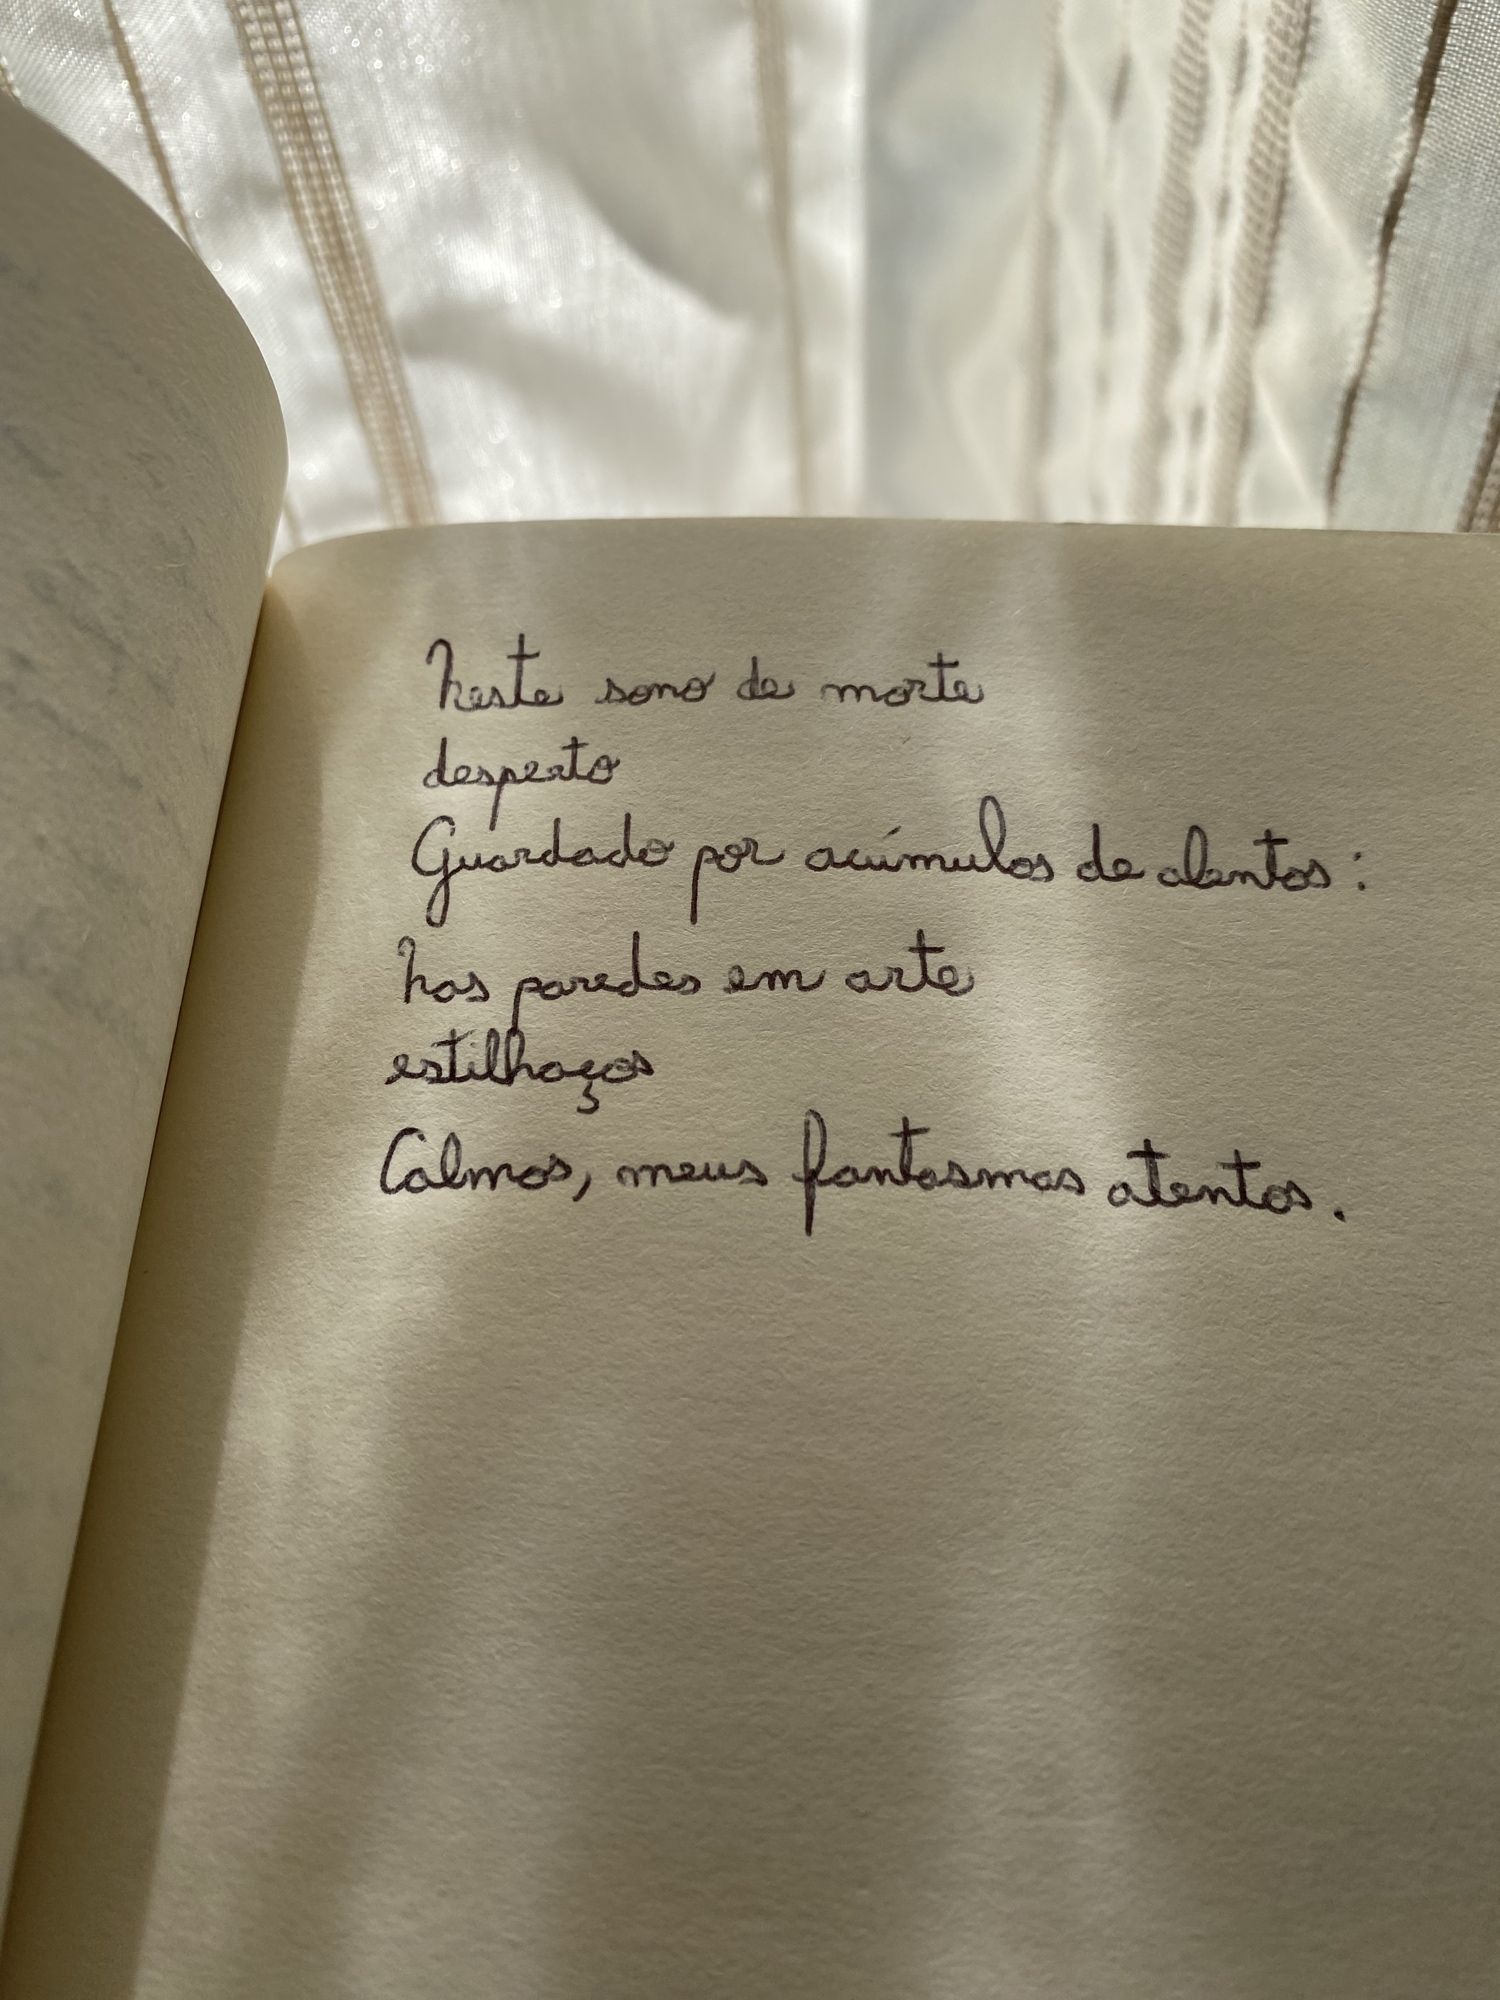 Neste sono de morte
desperto
Guardado por acúmulos de alentos:
Nas paredes em arte
estilhaços
Calmos, meus fantasmas atentos.